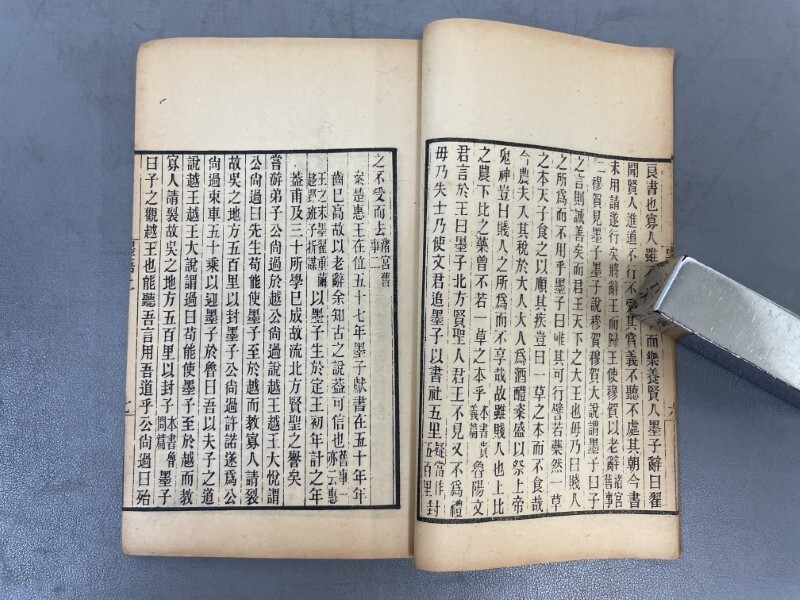 良書也寡人雖不而樂養賢人墨子辭曰翟
聞賢人進道不行不受其賞義不聽不處其朝今書
未用請遂行矣將辭王而歸王使穆賀以老辭渚宮舊事
二穆賀見墨子墨子說穆賀穆賀大說謂墨子曰子
之言則誠善矣而君王天下之大王也毋乃曰賤人
之所爲而不用乎墨子曰唯其可行譬若藥然一草
之本天子食之以順其疾豈曰一草之本而不食哉
今農夫入其稅於大人大人爲酒醴粢盛以祭上帝
鬼神豈曰賤人之所爲而不享哉故雖賤人也上比
之農下比之藥曾不若一草之本乎本書貴義篇魯陽文
君言於王曰墨子北方賢聖人君王不見又不爲禮
毋乃失士乃使文君追墨子以書社五里疑當作五百里封
之不受而去渚宮舊事二
案楚惠王在位五十七年墨子獻書在五十年年
齒已高故以老辭余知古之說蓋可信也舊事一亦云惠
王之末墨翟重繭趍郢班子折謀以墨子生於定王初年計之年
蓋甫及三十所學已成故流北方賢聖之譽矣
嘗游弟子公尚過於越公尚過說越王越王大悅謂
公尚過曰先生苟能使墨子至於越而教寡人請裂
故吳之地方五百里以封墨子公尚過許諾遂爲公
尚過束車五十乘以迎墨子於魯曰吾以夫子之道
說越王越王大說謂過曰苟能使墨子至於越而教
寡人請裂故吳之地方五百里以封子本書魯問篇墨子
曰子之觀越王也能聽吾言用吾道乎公尚過曰殆